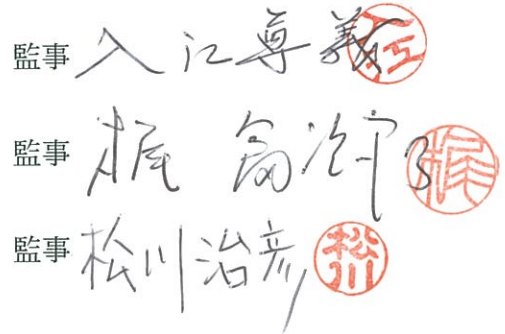 監事 入江尊義
監事 梶
監事 松川治彦